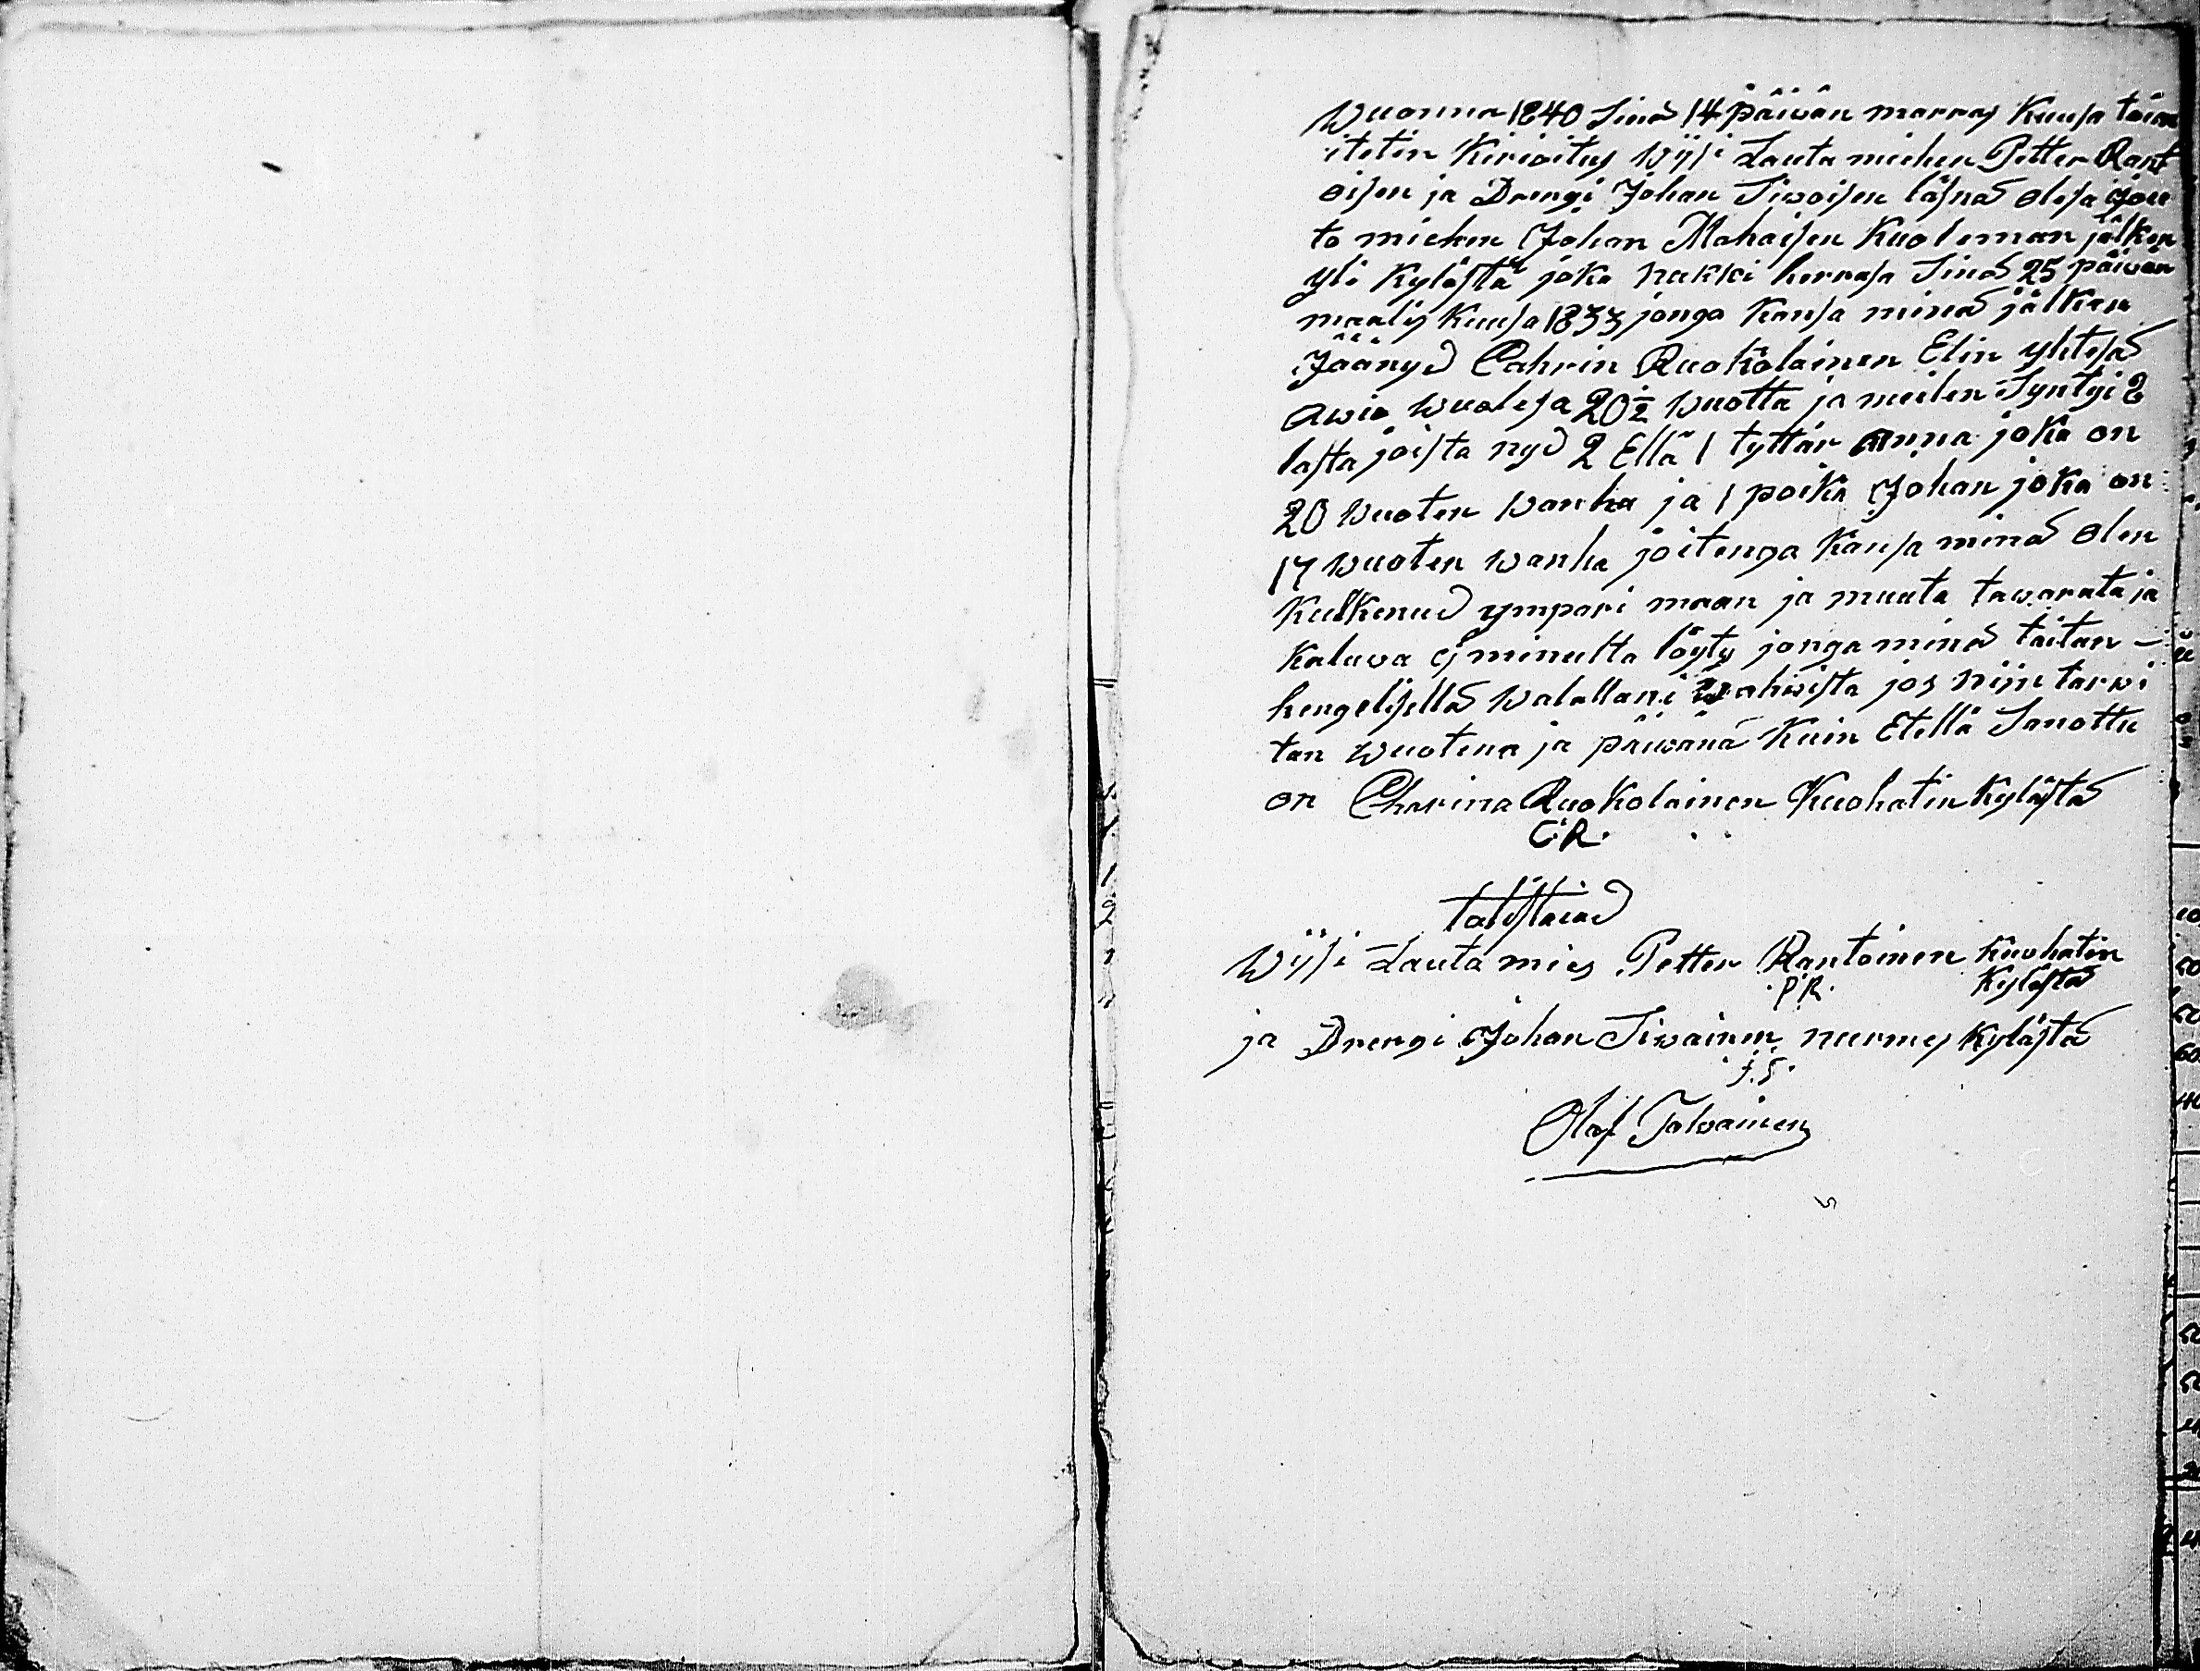 Wuonna 1840 Sinä 14 päivän marras Kuusa toim
itetin Kirioitus Wijsi Lauta miehen Petter Rant
oisen ja Drengi Johan Siwoisen läsnä olesa jou
to miehen Johan Mahoisen Kuoleman jälken
yli Kylästä joka nukki herrasa Sinä 25 päivän
maalis Kuusa 1833 jonga Kansa minä jälken
Jäänyd Cahrin Ruokolainen Elin yhtesä
awio wuolesa 20½ wuotta ja meilen Syntyi 8
lasta joista nyd 2 Ellä 1 tyttär Anna joka on
20 wuoten wanha ja 1 poika Johan joka on
17 wuoten wanha joitenga Kansa minä olen
Kulkenud ympari maan ja muuta tawarata ja
Kaluva ej minulta löyty jonga minä taitan –
hengelisellä walallani wahwista jos nijn tarwi
tan wuotena ja päiwänä Kuin Etellä Sanottu
on Charina Ruokolainen Kuohatin Kylästä
C.R.
totistawad
Wijsi Lauta mies Petter Rantoinen Kuohatin
P.R. Kylästä
ja Drengi Johan Siwainen nurmes Kylästä
J.S.
Olof Tolvainen